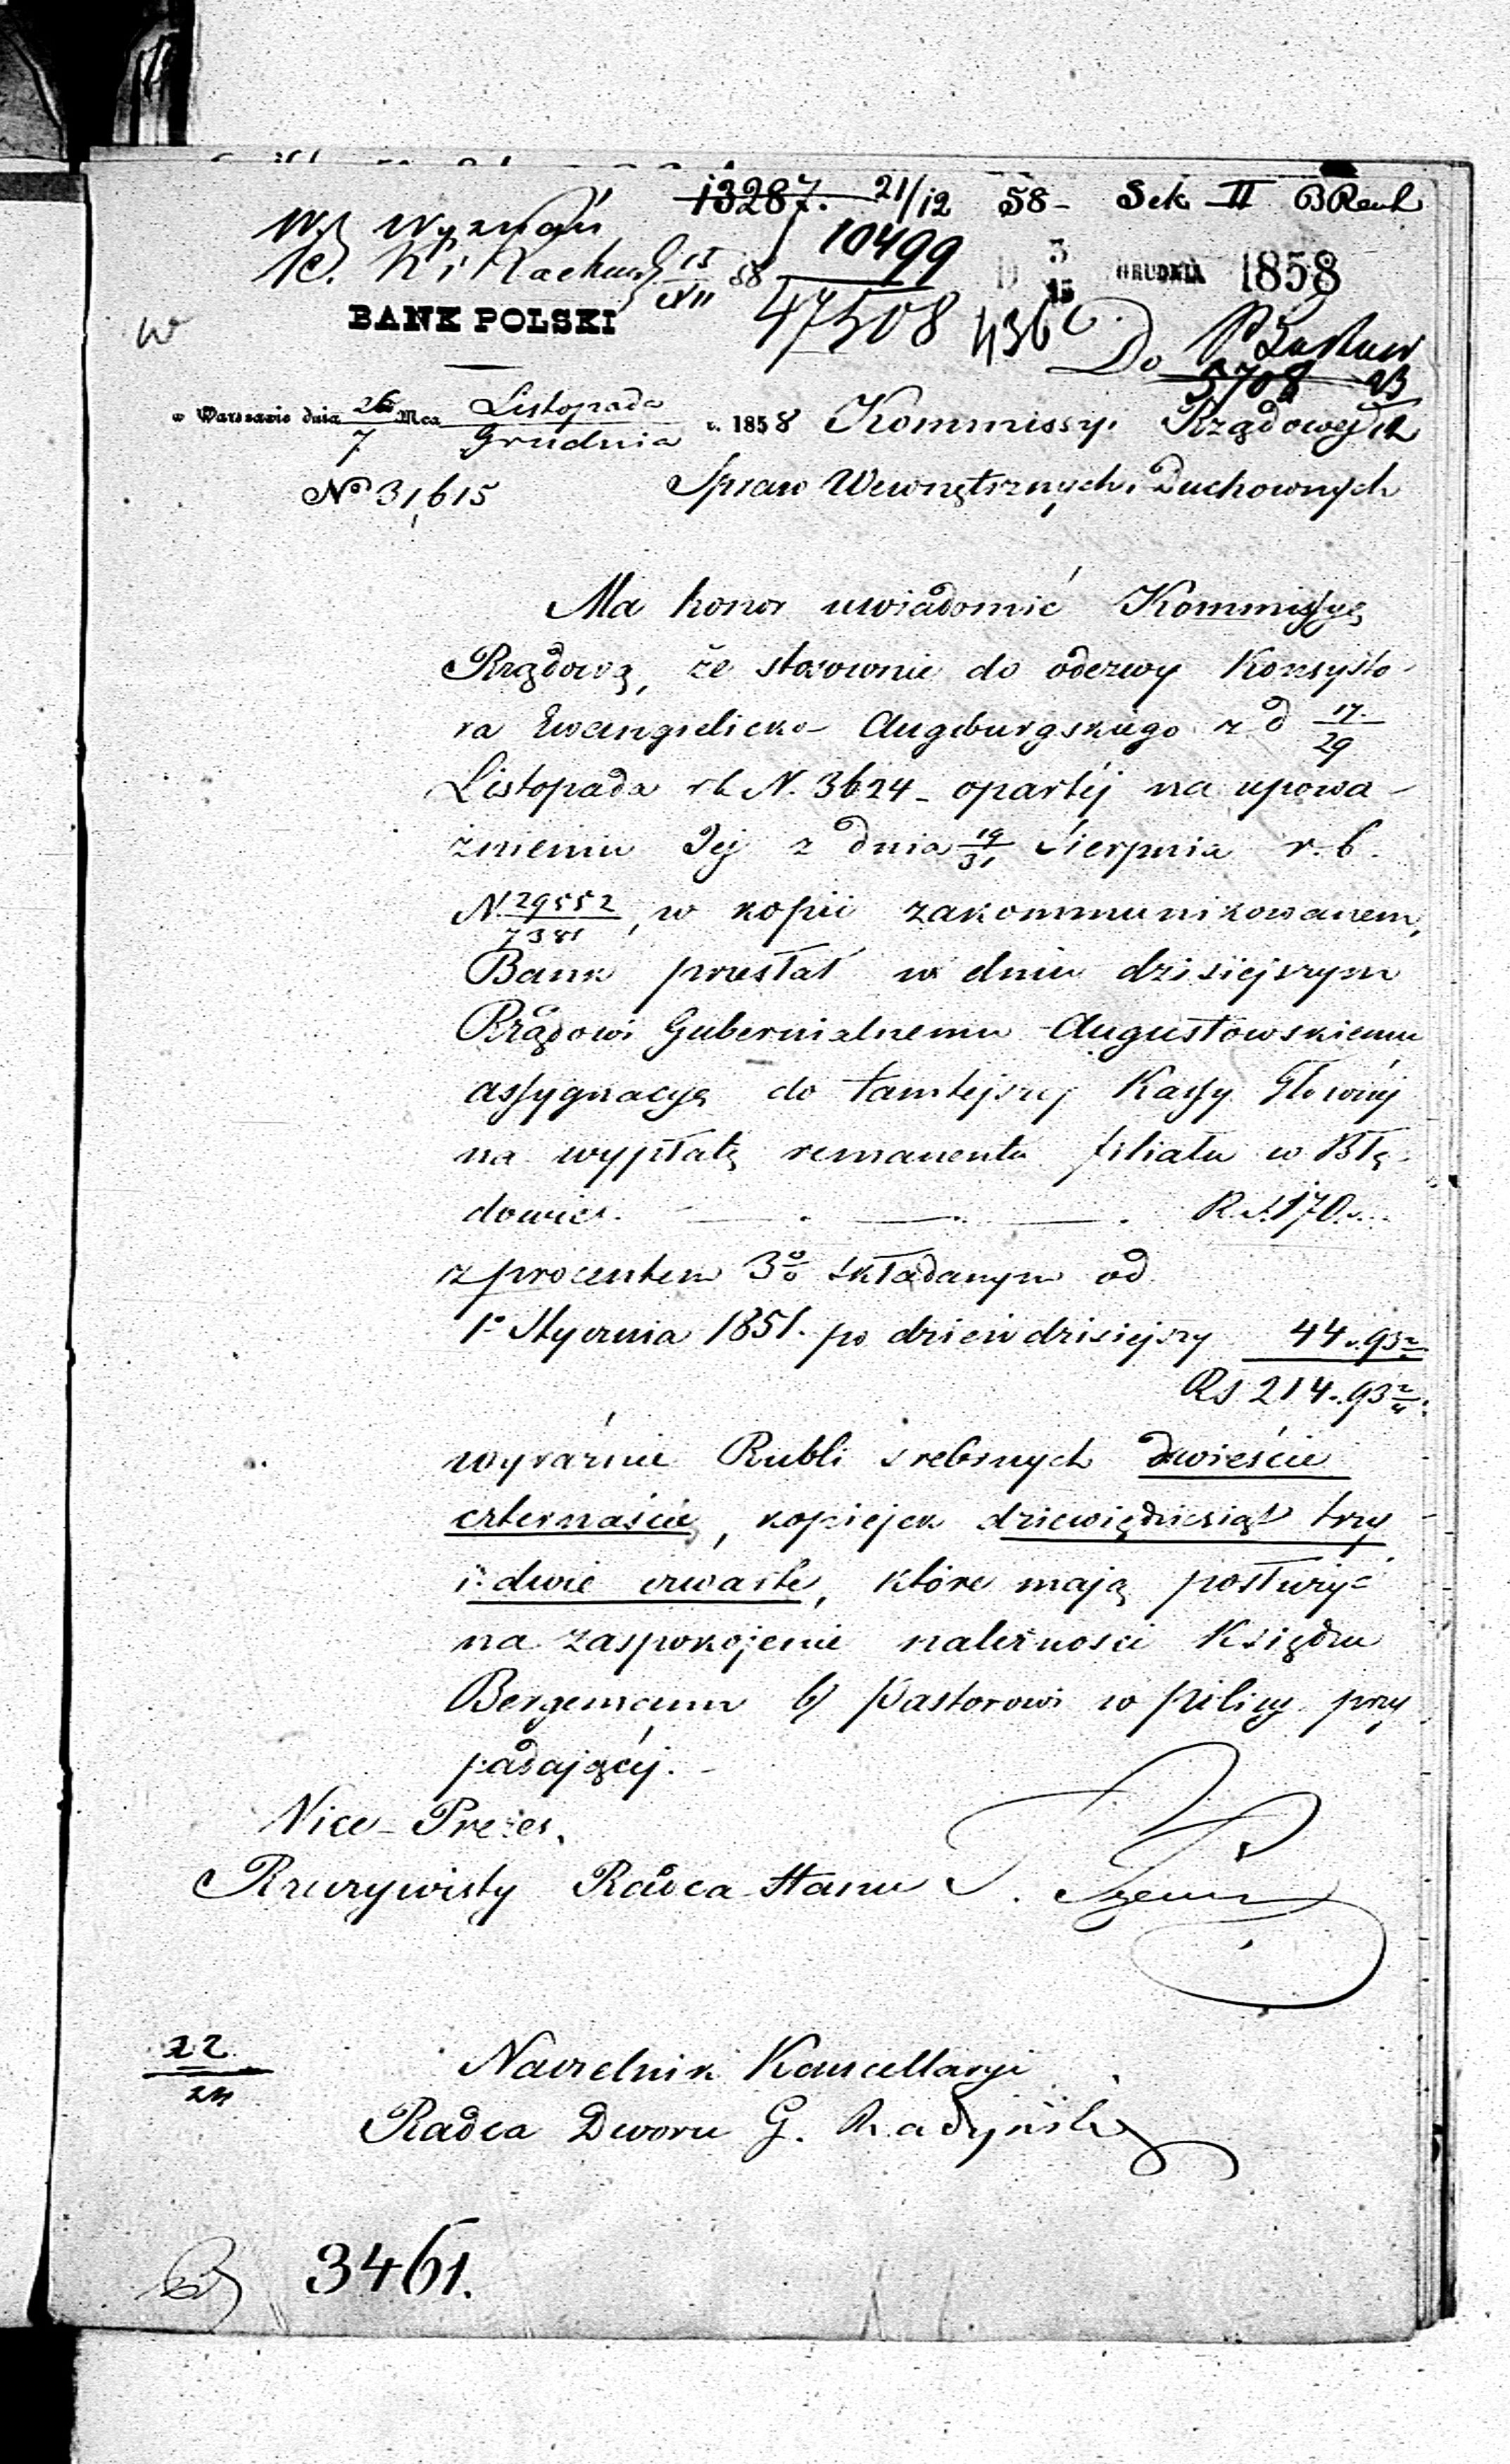 13287. 21/12 58 - Sek II
Wł Wyznań
10499
15/XII 58
3/15 GRUDNIA 1858
BANK POLSKI
47508 436
w
Do
5708
w Warszawie dnia 26/7 Mca Listopada/Grudnia r. 1858 Kommissyi Rządowej
No 31,615 Spraw Wewnętrznych i Duchownych
Ma honor uwiadomić Kommissyę
Rządową, że stosownie do odezwy Konsysto-
rza Ewangielicko-Augsburgskiego z d 17/29
Listopada rb N. 3624 - opartéj na upowa-
żnieniu Jej z dnia 19/31 Sierpnia r. b.
N. 29552/7381, w kopii zakommunikowanem,
Bank przesłał w dniu dzisiejszym
Rządowi Gubernialnemu Augustowskiemu
assygnacyę do tamtejszej Kassy Głównéj
na wypłatę remanentu filiału w Błę-
dowie. R.s. 170.
z procentem 3% składanym od
1o Stycznia 1851. po dzień dzisiejszy 44.93 2/4
Rs 214.93 2/4
wyraźnie Rubli srebrnych dwieście
czternaście, kopiejek dziewięćdziesiąt trzy
i dwie czwarte, które mają posłużyć
na zaspokojenie należności Księdzu
Bergemann b. Pastorowi w Pilicy przy
padającéj. -
Vice-Prezes,
Rzeczywisty Radca Stanu
22/24
Naczelnik Kancellaryi
Radca Dworu G. Radyński
3461.